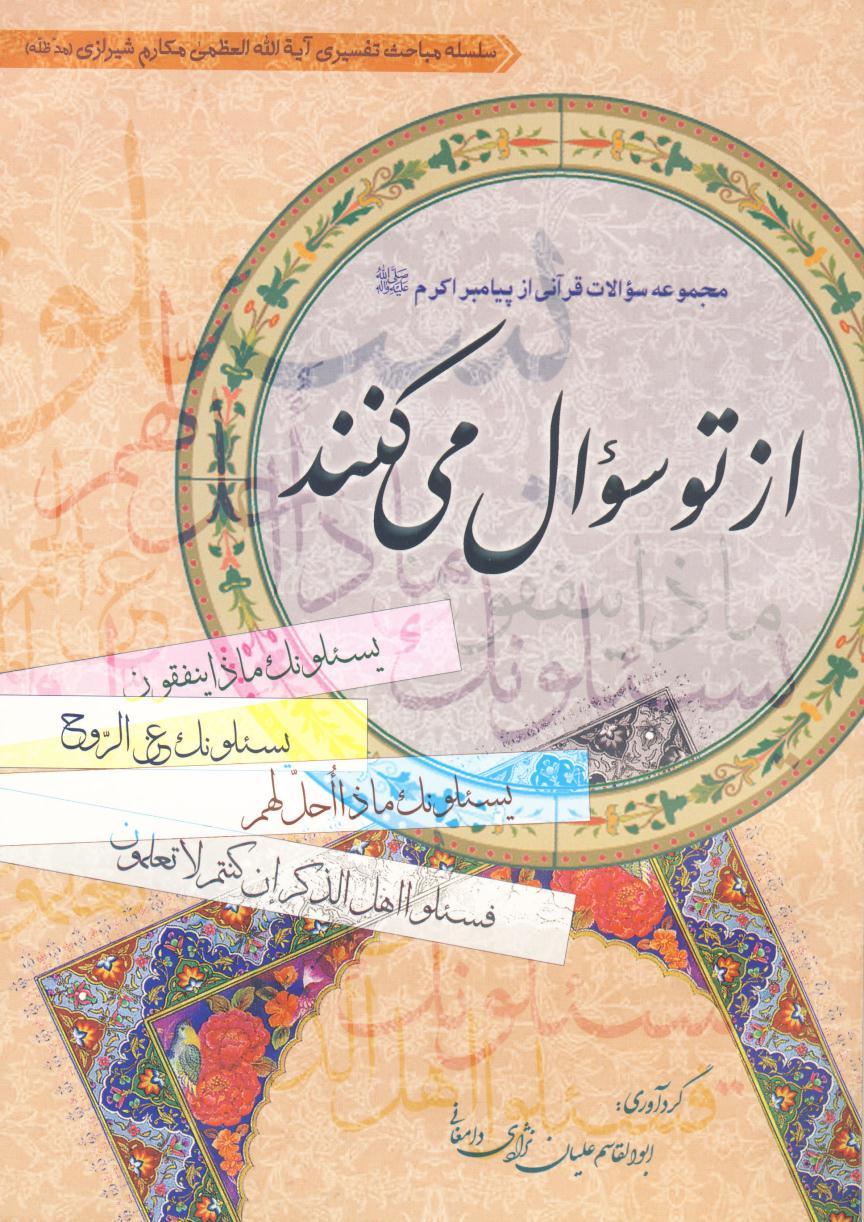 سلسله مباحث تفسیری آیة الله العظمی مکارم شیرازی (مدّ ظلّه)
مجموعه سؤالات قرآنی از پیامبر اکرم ﷺ
از تو سؤال می کنند
یسئلونك ماذا ینفقون
یسئلونك عن الرّوح
یسئلونك ماذا أُحلّ لهم
فسئلوا اهل الذکر إن کنتم لا تعلمون
گردآوری:
ابوالقاسم علیان نژادی دامغانی